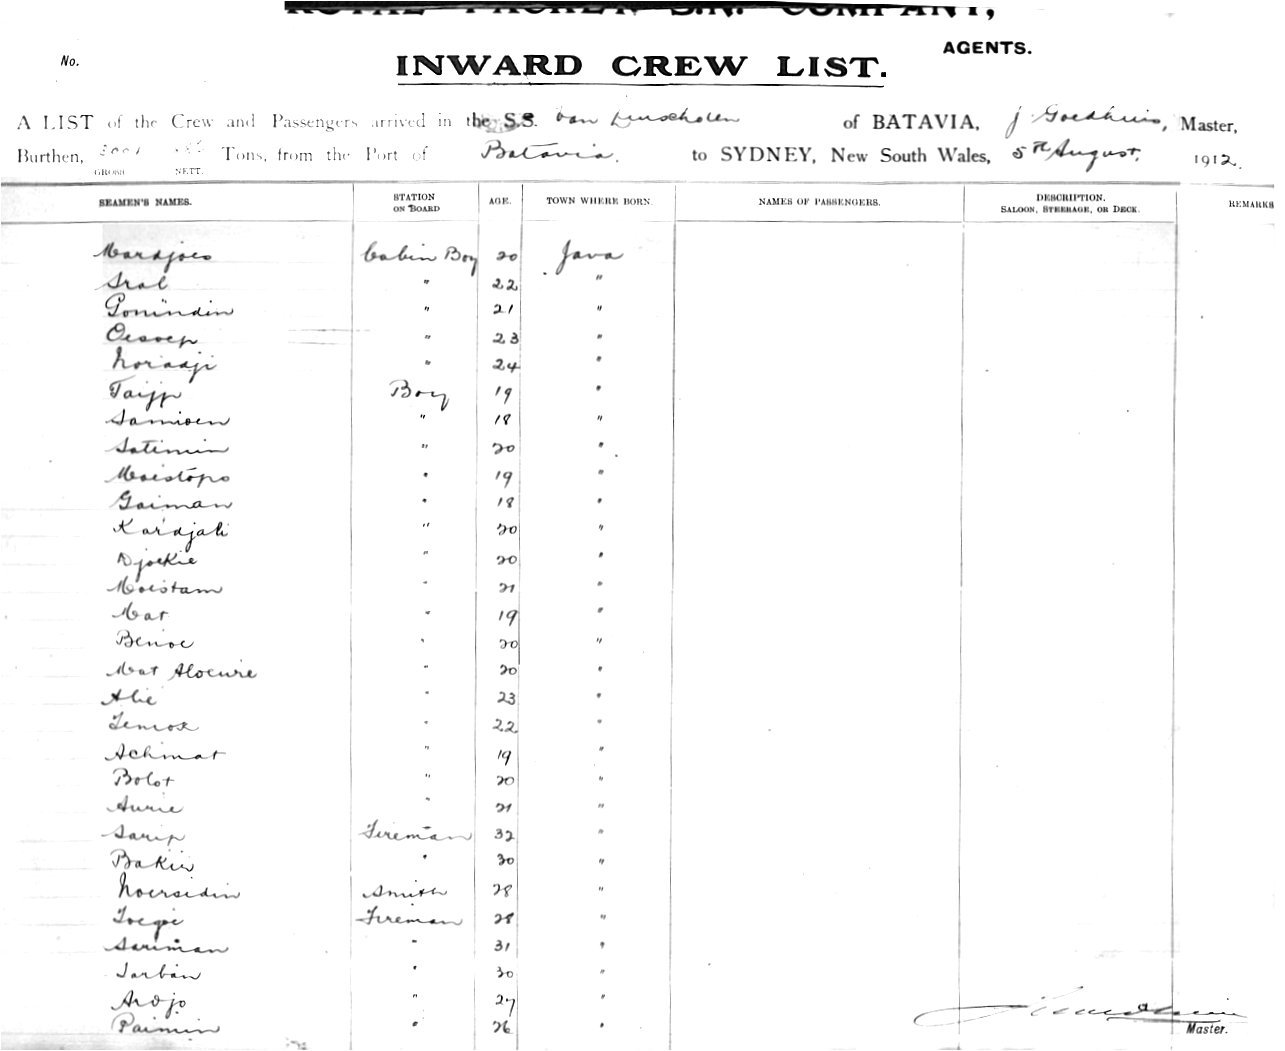 ROYAL PACKET S.N. COMPANY,
AGENTS.
No.
INWARD CREW LIST.
A LIST of the Crew and Passengers arrived in the S.S. Van Linschoten of BATAVIA, J Goedhuis, Master,
Burthen, Tons, from the Port of Batavia. to SYDNEY, New South Wales, 5th August, 1912.
GROSS NETT.
SEAMEN'S NAMES. STATION ON BOARD AGE. TOWN WHERE BORN. NAMES OF PASSENGERS. DESCRIPTION. SALOON, STEERAGE, OR DECK. REMARKS
Mardjoes Cabin Boy 20 Java
Sral " 22 "
Gonindin " 21 "
Oesoep " 23 "
Noriadji " 24 "
Taijp Boy 19 "
Samioen " 18 "
Satimin " 20 "
Moestopo " 19 "
Gaiman " 18 "
Kardjali " 20 "
Djoekie " 20 "
Moestam " 21 "
Mat " 19 "
Benoe " 20 "
Mat " 20 "
Alie " 23 "
" 22 "
Achmat " 19 "
Bolot " 20 "
Aurie " 21 "
Sarip Fireman 32 "
Bakir " 30 "
Noersidin Smith 28 "
Toegoe Fireman 28 "
Sariman " 31 "
Sarban " 30 "
Ardjo " 27 "
Paimin " 26 "
Master.